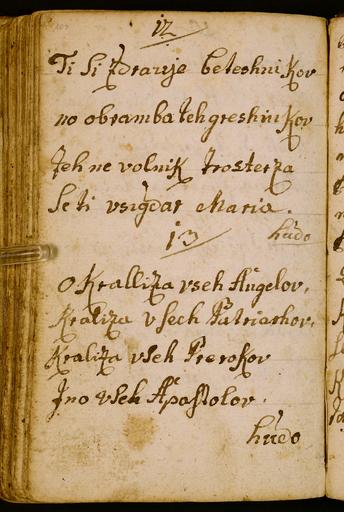 12
Ti Si Zdravje beteshnikov
no obramba teh greshnikov
teh ne volnik troshterza
Se ti vsigdar Maria.
hudo
13
O Kralliza vseh Angelov,
Kraliza vsech Patriarhov,
Kraliza vseh Prerokov
Jno vseh Apostolov.
hudo